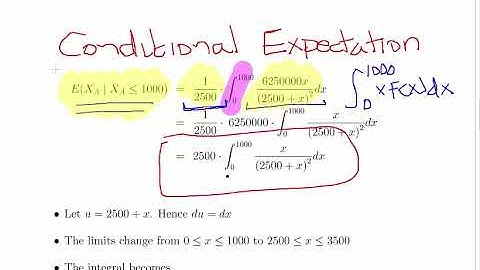 Conditional Expectation
E(X_A | X_A ≤ 1000) = 1/2500 ∫_0^1000 6250000x/(2500 + x)^2 dx ∫_0^1000 x f(x) dx
= 1/2500 · 6250000 · ∫_0^1000 x/(2500 + x)^2 dx
= 2500 · ∫_0^1000 x/(2500 + x)^2 dx
• Let u = 2500 + x. Hence du = dx
• The limits change from 0 ≤ x ≤ 1000 to 2500 ≤ x ≤ 3500
• The integral becomes